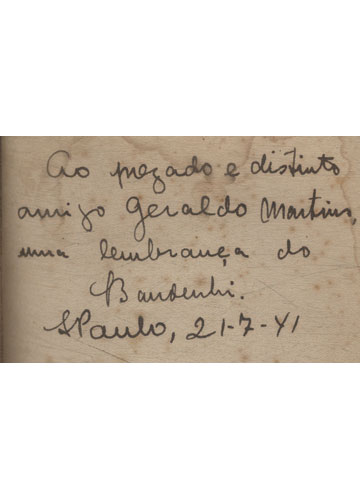 Ao prezado e distinto
amigo Geraldo Martins,
uma lembrança do
S Paulo, 21-7-41